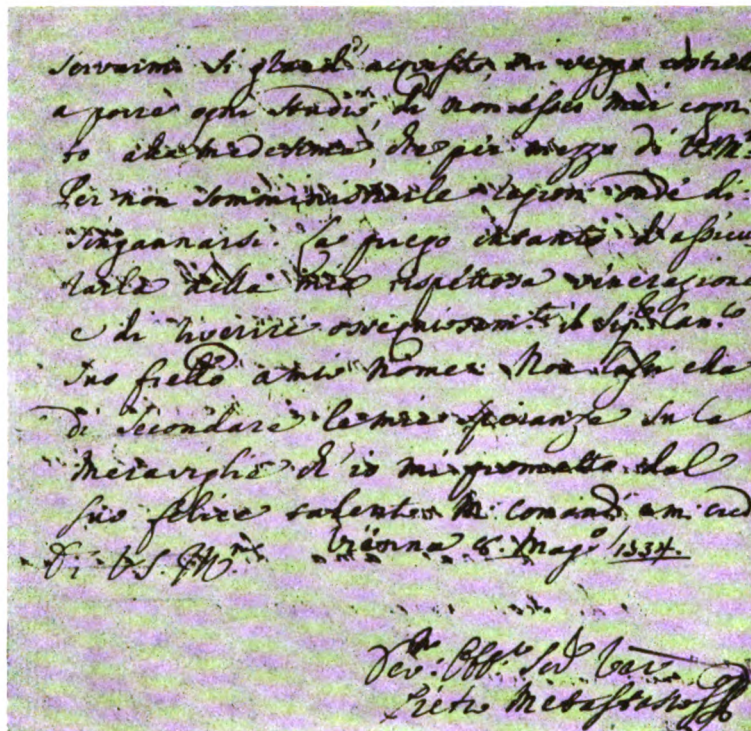 servarmi si grand' acquisto, mi veggo costret
a porre ogni studio, di non esser mai cogni
to alla medesima, che per mezzo di V.S. Ill.ma
Per non somministrarle ragioni onde di
singannarsi. La priego intanto d'assicu
rarla della mia rispettosa venerazion
e di riverire ossequiosam.te il Sig.r Can.co
suo frello a mio nome. Non lasci ella
di secondare le mie speranze su le
meraviglie ch'io mi prometta dal
suo felice talento. Mi comandi e mi cred
Di V.S. Ill.ma Vienna 8. Mag.o 1734.
Dev.mo Obb.mo Ser.
Pietro Metastasio